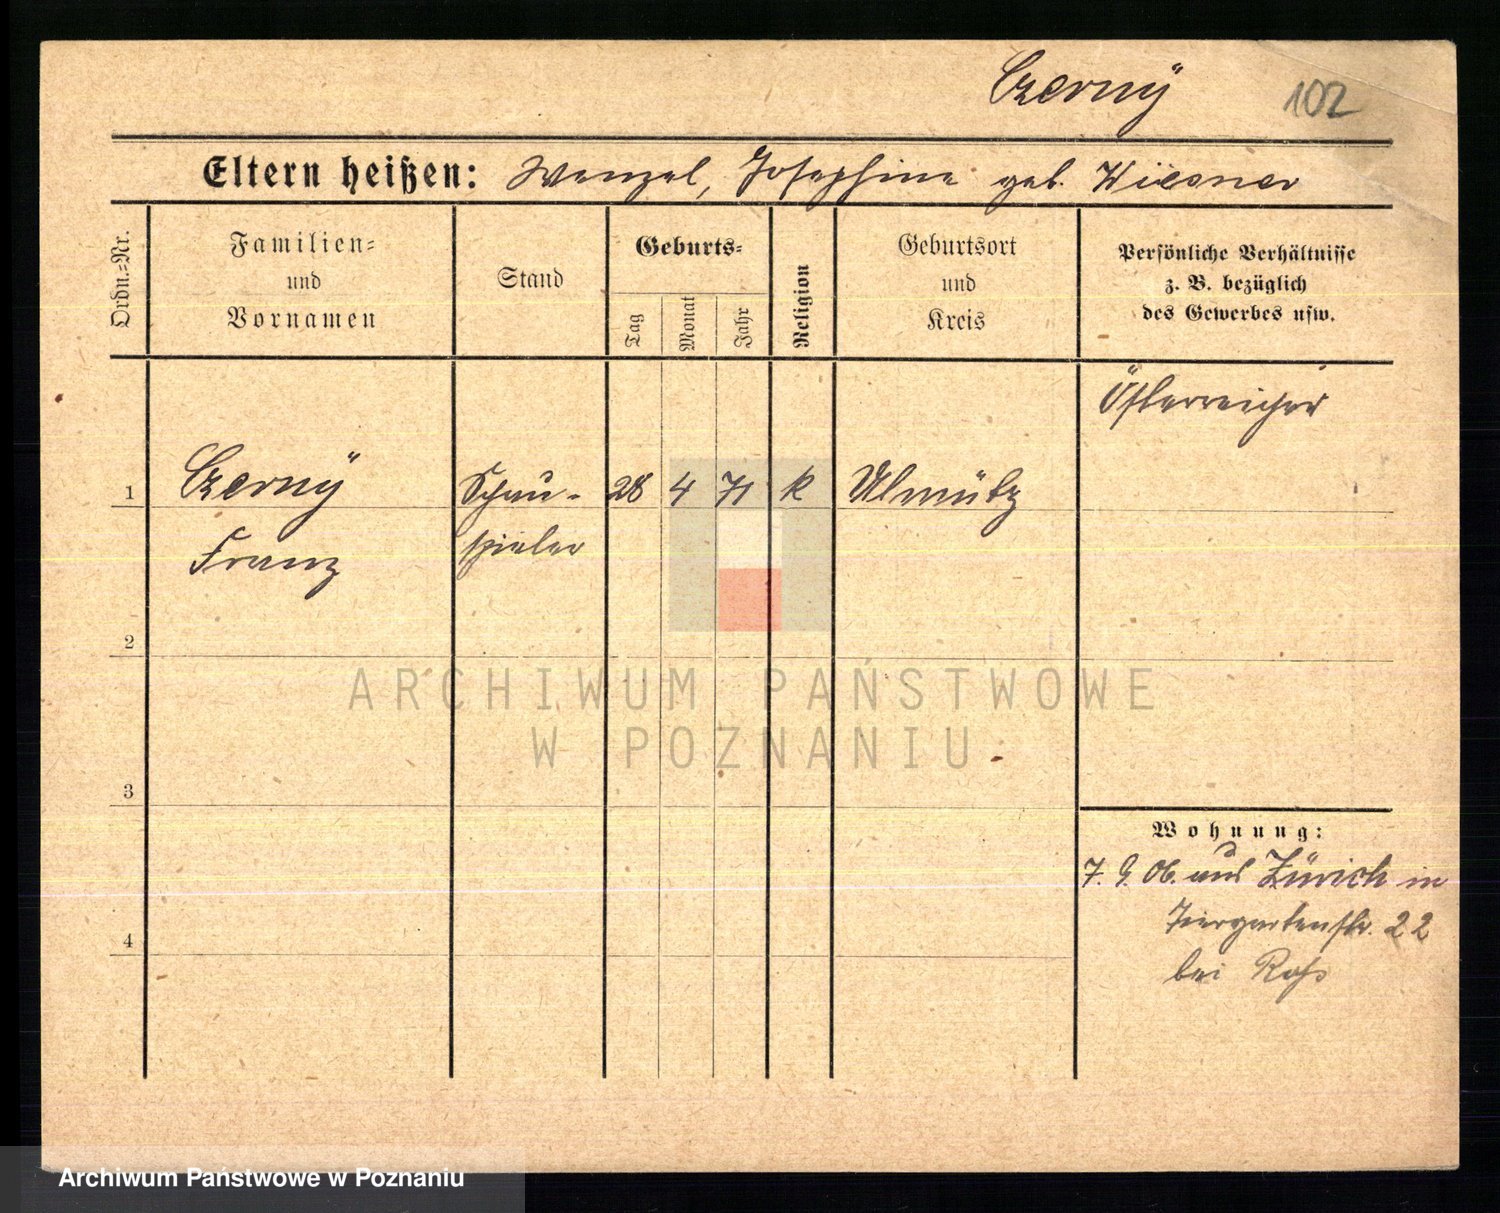 Czerny̋
102
Eltern heißen: Wenzel, Josephine geb. Wiesner
Ordn.=Nr.
Familien=
und
Vornamen
Stand
Geburts=
Tag
Monat
Jahr
Religion
Geburtsort
und
Kreis
Persönliche Verhältnisse
z. B. bezüglich
des Gewerbes usw.
Österreicher
1
Czerny̋
Schau-
28
4
71
k
Ulmütz
Franz
spieler
2
ARCHIWUM PAŃSTWOWE
W POZNANIU
3
Wohnung:
7. 9. 06. aus Zürich in
Tiergartenstr. 22
bei Roß
4
Archiwum Państwowe w Poznaniu